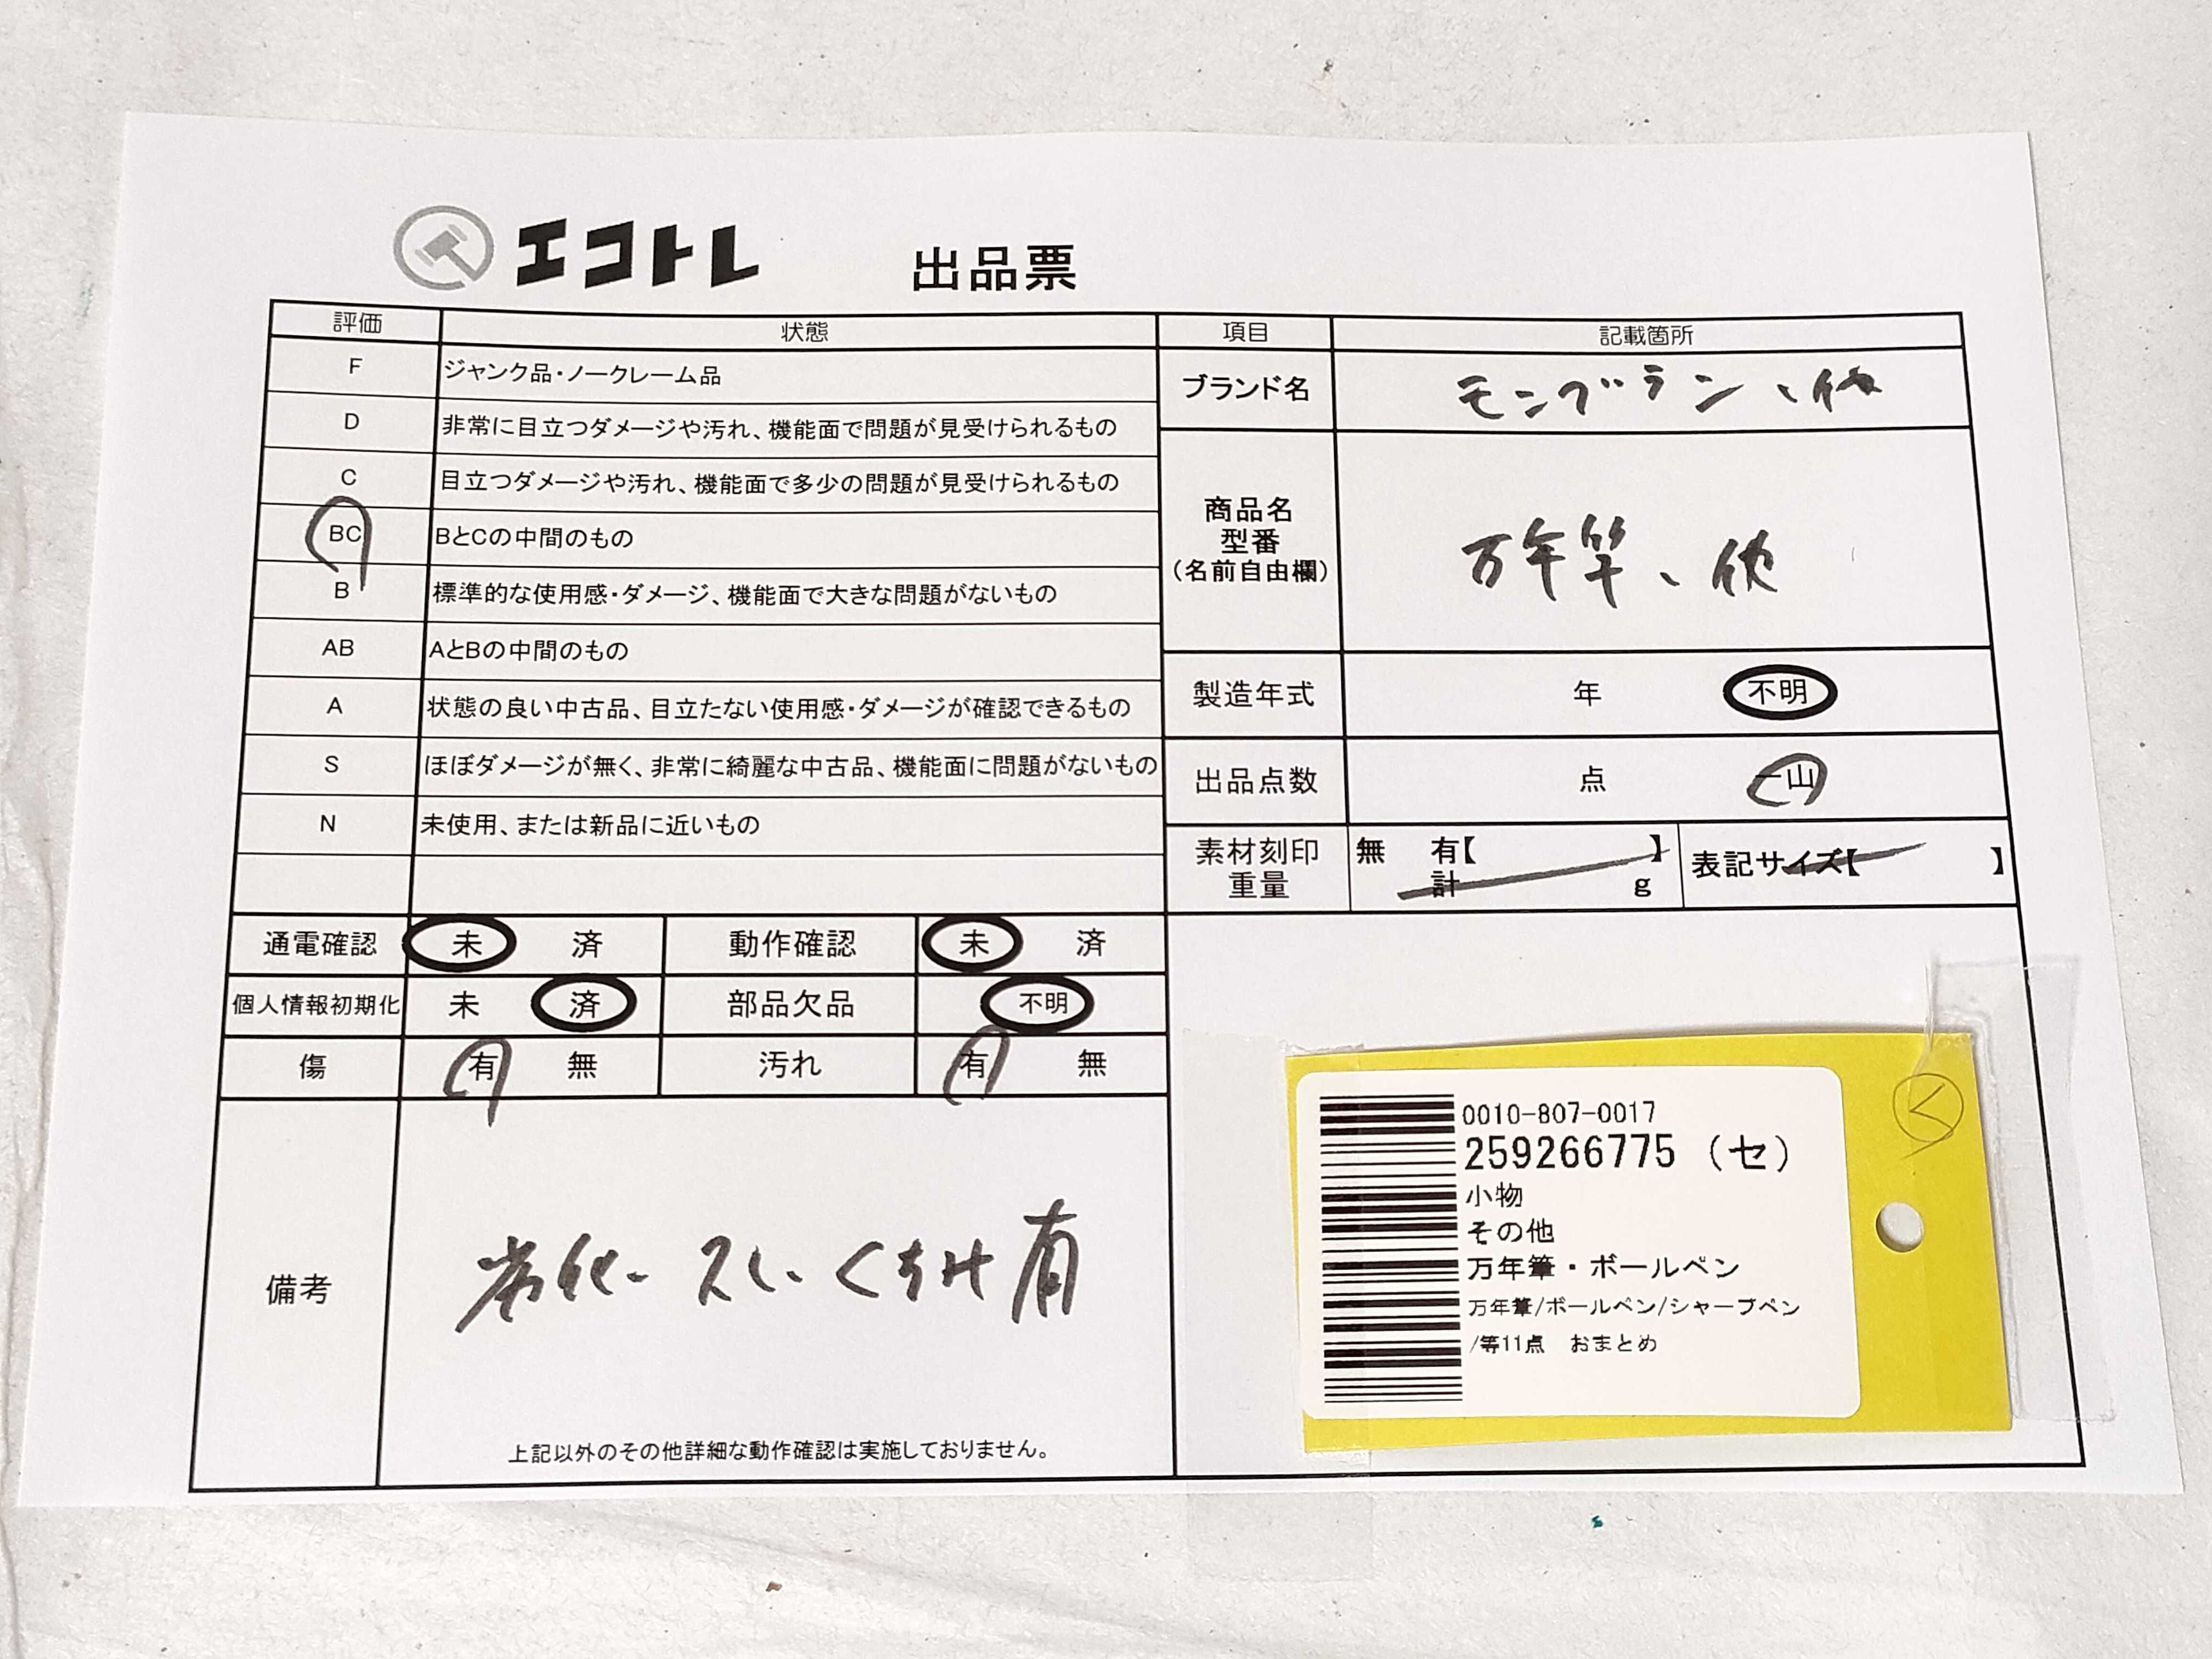 エコトレ 出品票
評価 状態 項目 記載箇所
F ジャンク品・ノークレーム品
D 非常に目立つダメージや汚れ、機能面で問題が見受けられるもの
C 目立つダメージや汚れ、機能面で多少の問題が見受けられるもの
BC BとCの中間のもの
B 標準的な使用感・ダメージ、機能面で大きな問題がないもの
AB AとBの中間のもの
A 状態の良い中古品、目立たない使用感・ダメージが確認できるもの
S ほぼダメージが無く、非常に綺麗な中古品、機能面に問題がないもの
N 未使用、または新品に近いもの
ブランド名 モンブラン、他
商品名
型番
(名前自由欄)
万年筆、他
製造年式 年 不明
出品点数 点 一山
素材刻印 無 有【 】 表記サイズ【 】
重量 計 g
通電確認 未 済 動作確認 未 済
個人情報初期化 未 済 部品欠品 不明
傷 有 無 汚れ 有 無
備考
劣化、スレ、くすみ有
上記以外のその他詳細な動作確認は実施しておりません。
0010-807-0017
259266775 (セ)
小物
その他
万年筆・ボールペン
万年筆/ボールペン/シャープペン
/等11点 おまとめ